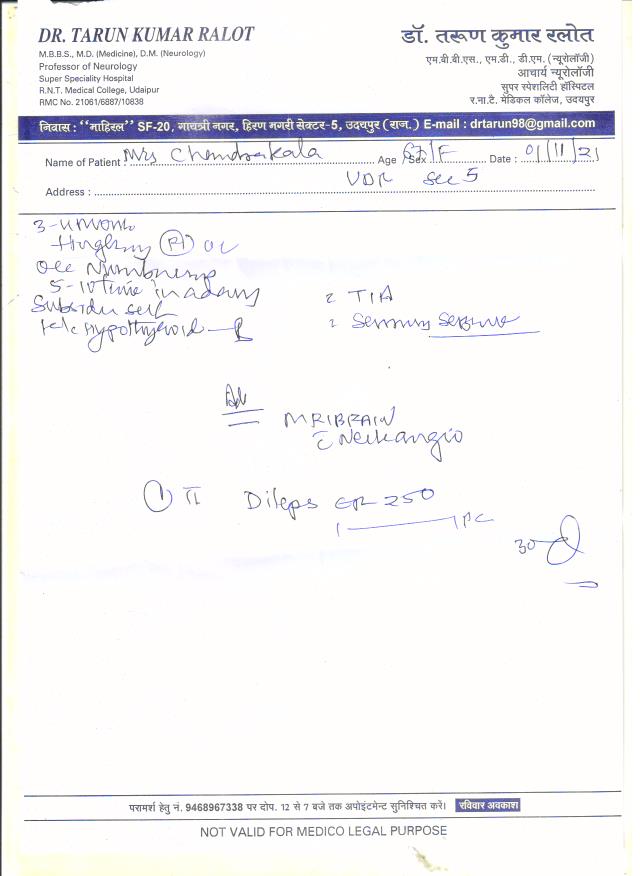 DR. TARUN KUMAR RALOT
M.B.B.S., M.D. (Medicine), D.M. (Neurology)
Professor of Neurology
Super Speciality Hospital
R.N.T. Medical College, Udaipur
RMC No. 21061/6887/10838
डॉ. तरूण कुमार रलोत
एम.बी.बी.एस., एम.डी., डी.एम. (न्यूरोलॉजी)
आचार्य न्यूरोलॉजी
सुपर स्पेशलिटी हॉस्पिटल
र.ना.टै. मेडिकल कॉलेज, उदयपुर
निवास : "माहिरल" SF-20, गायत्री नगर, हिरण मगरी सेक्टर-5, उदयपुर (राज.) E-mail : drtarun98@gmail.com
Name of Patient : Mrs Chandrakala Age /Sex 67/F Date : 01/11/21
Address : UDR Sec 5
3-
(Rt)
Numbness
5-10 time in a day
Hypothyroid
TIA
Sensory Seizure
Adv
MRI BRAIN
Neck angio
① Dileps ER 250
1 1 PC
30
परामर्श हेतु नं. 9468967338 पर दोप. 12 से 7 बजे तक अपोइंटमेन्ट सुनिश्चित करें। रविवार अवकाश
NOT VALID FOR MEDICO LEGAL PURPOSE